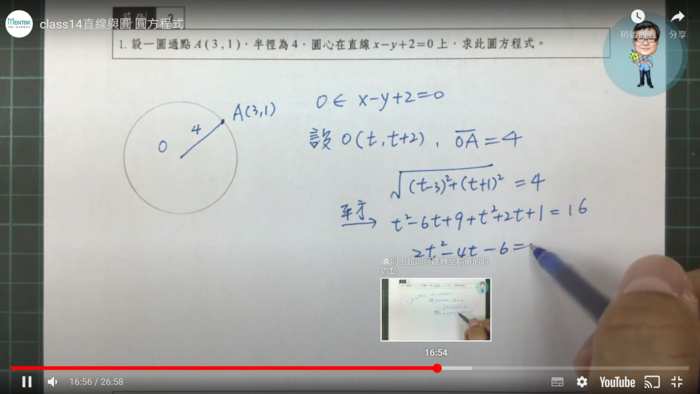 MENTOR
class14直線與圓 圓方程式
分享
1. 設一圓通點 A(3,1),半徑為4,圓心在直線 x−y+2=0 上,求此圓方程式。
A(3,1)
4
O
O∈ x−y+2=0
設 O(t,t+2), OA=4
√(t-3)²+(t+1)² =4
平方→ t²−6t+9+t²+2t+1=16
2t²−4t−6=
16:54
16:56 / 26:58
YouTube